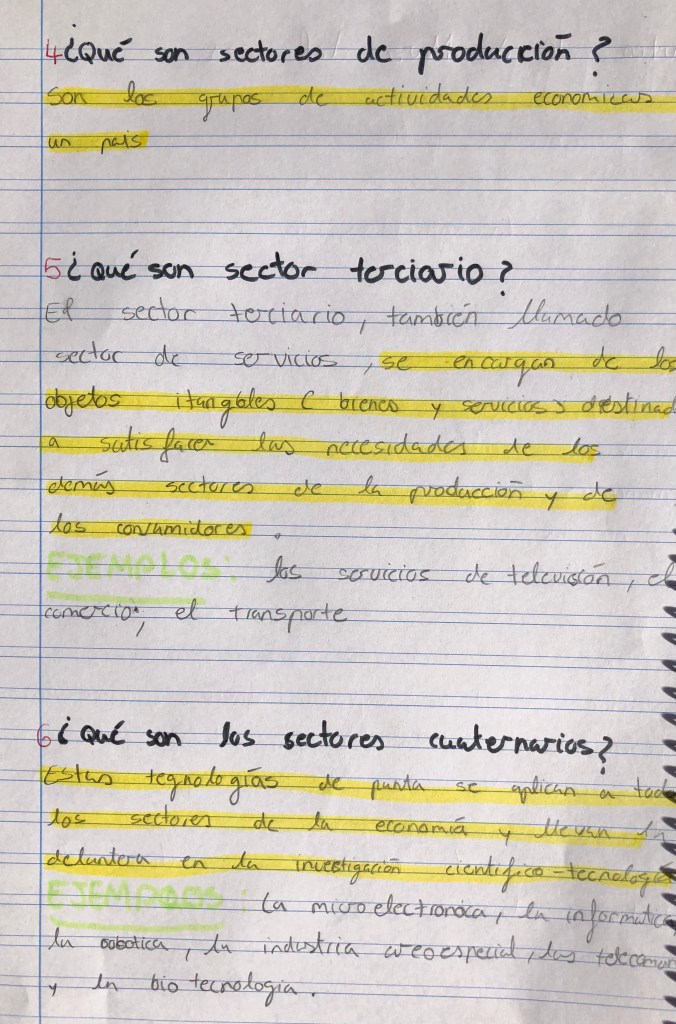 4 ¿Qué son sectores de producción ?
Son los grupos de actividades economicas
un pais
5 ¿ qué son sector terciario ?
El sector terciario, también llamado
sector de servicios, se encargan de los
objetos itangibles ( bienes y servicios) destinad
a satisfacer las necesidades de los
demás sectores de la producción y de
los consumidores.
EJEMPLOS: los servicios de televisión, el
comercio, el transporte
6 ¿ Qué son los sectores cuaternarios?
Estas tegnologías de punta se aplican a tod
los sectores de la economía y llevan la
delantera en la investigación científico-tecnologic
EJEMPLOS : La microelectronica, la informatica
la robotica, la industria areoespecial, las telecomun
y la bio tecnologia.